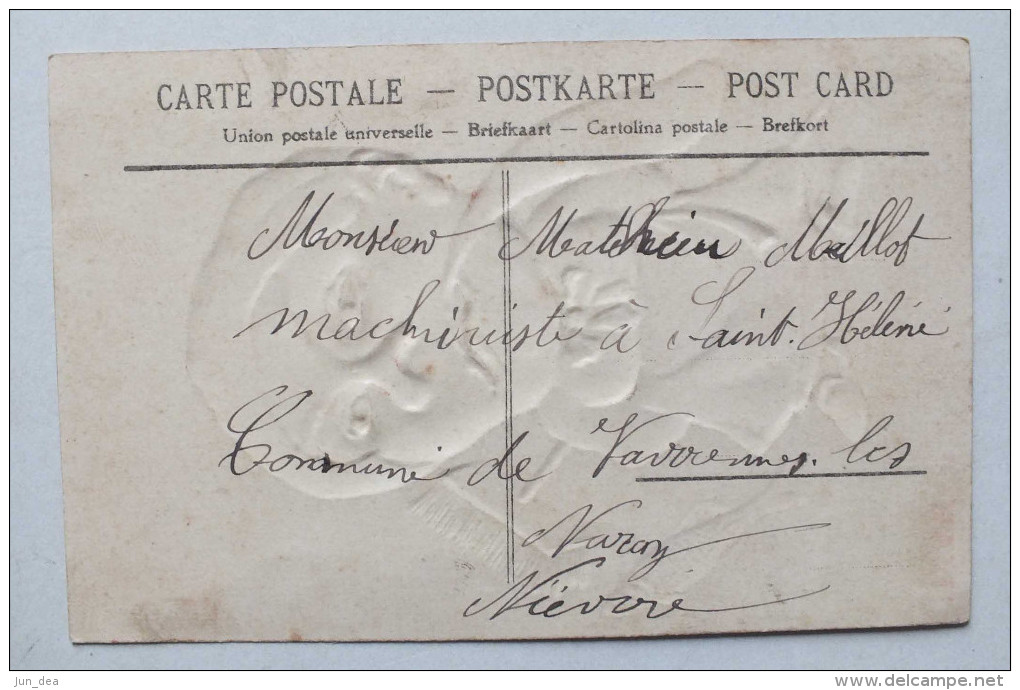 CARTE POSTALE — POSTKARTE — POST CARD
Union postale universelle — Briefkaart — Cartolina postale — Brefkort
Monsieur Mathieu Millot
machiniste à Saint. Hélène
Commune de Varrennes. les
Narcy
Nièvre
jun_dea
www.delcampe.net